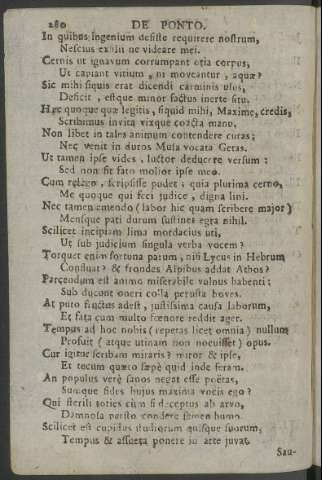 280 DE PONTO.
In quibus ingenium desiste requirere nostrum,
Nescius exilii ne videare mei.
Cernis ut ignavum corrumpant otia corpus,
Ut capiant vitium, ni moveantur, aquæ?
Sic mihi siquis erat dicendi carminis usus,
Deficit, estque minor factus inerte situ.
Hæc quoque quæ legitis, siquid mihi, Maxime, credis,
Scribimus invita vixque coacta manu.
Non libet in tales animum contendere curas;
Nec venit in duros Musa vocata Getas.
Ut tamen ipse vides, luctor deducere versum:
Sed non fit fato mollior ipse meo.
Cum relego, scripsisse pudet; quia plurima cerno,
Me quoque qui feci judice, digna lini.
Nec tamen emendo (labor hic quam scribere major)
Mensque pati durum sustinet ægra nihil.
Scilicet incipiam lima mordacius uti,
Ut sub judicium singula verba vocem?
Torquet enim fortuna parum, nisi Lycus in Hebrum
Confluat? & frondes Alpibus addat Athos?
Parcendum est animo miserabile vulnus habenti:
Sub ducunt oneri colla perusta boves.
At puto fructus adest, justissima causa laborum,
Et sata cum multo fœnore reddit ager.
Tempus ad hoc nobis (repetas licet omnia) nullum
Profuit (atque utinam non nocuisset) opus.
Cur igitur scribam miraris? miror & ipse,
Et tecum quæro sæpè quid inde feram.
An populus verè sanos negat esse poëtas,
Sumque fides hujus maxima vocis ego?
Qui sterili toties cùm si deceptus ab arvo,
Damnosa persto condere semen humo.
Scilicet est cupidus studiorum quisque suorum,
Tempus & assueta ponere in arte juvat.
Sæ-